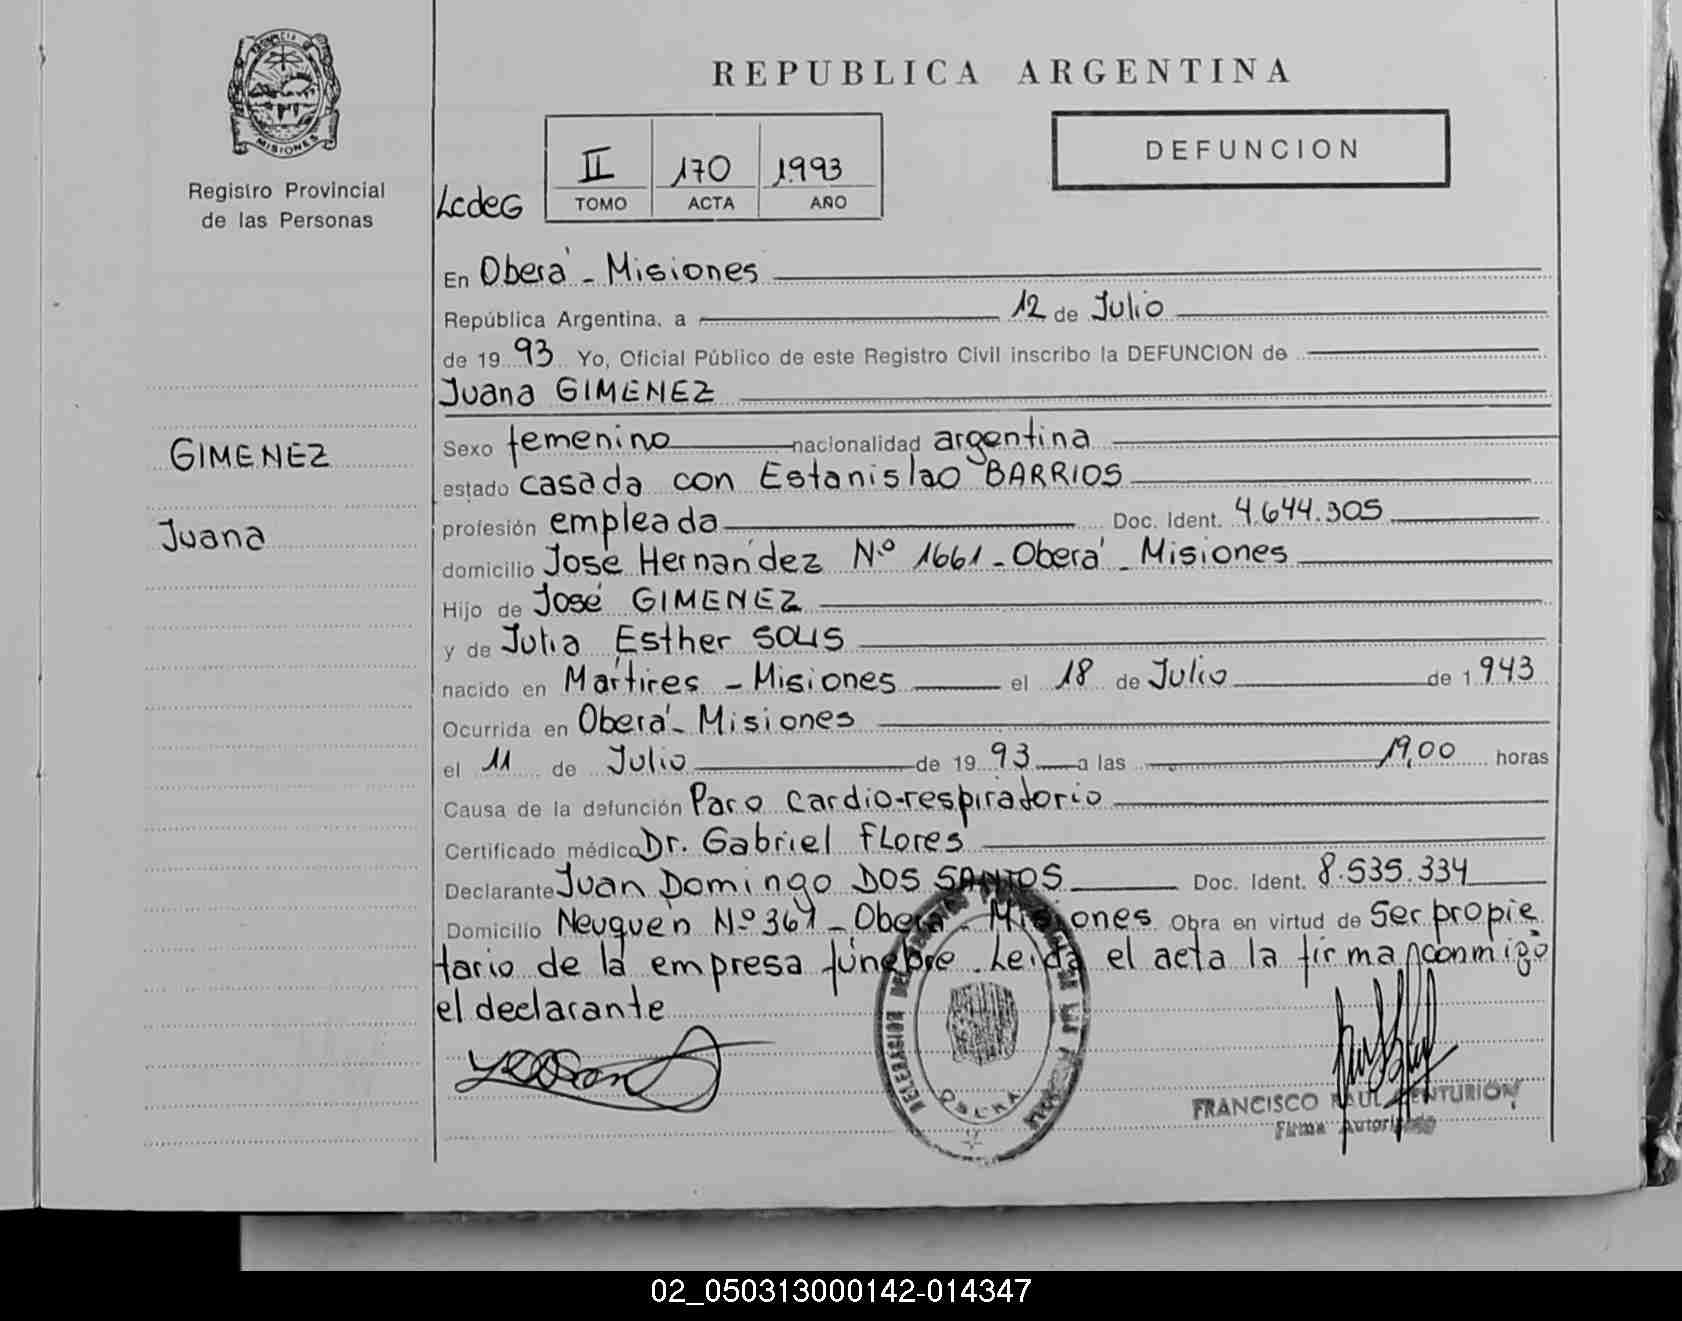 PROVINCIA DE
MISIONES
Registro Provincial
de las Personas
REPUBLICA ARGENTINA
DEFUNCION
LcdeG
II 170 1993
TOMO ACTA AÑO
En Oberá - Misiones
República Argentina, a 12 de Julio
de 19 93 Yo, Oficial Público de este Registro Civil inscribo la DEFUNCION de
Juana GIMENEZ
GIMENEZ
Juana
Sexo femenino nacionalidad argentina
estado casada con Estanislao BARRIOS
profesión empleada Doc. Ident. 4.644.305
domicilio José Hernández N.º 1661 - Oberá - Misiones
Hijo de José GIMENEZ
y de Julia Esther SOLIS
nacido en Mártires - Misiones el 18 de Julio de 1 943
Ocurrida en Oberá - Misiones
el 11 de Julio de 19 93 a las 19,00 horas
Causa de la defunción Paro cardio-respiratorio
Certificado médico Dr. Gabriel FLores
Declarante Juan Domingo DOS SANTOS Doc. Ident. 8.535.334
Domicilio Neuquén Nº 367 - Oberá - Misiones Obra en virtud de Ser propie
tario de la empresa fúnebre. Leida el acta la firma conmigo
el declarante
OBERA
FRANCISCO RAUL CENTURION
Firma Autorizada
02_050313000142-014347